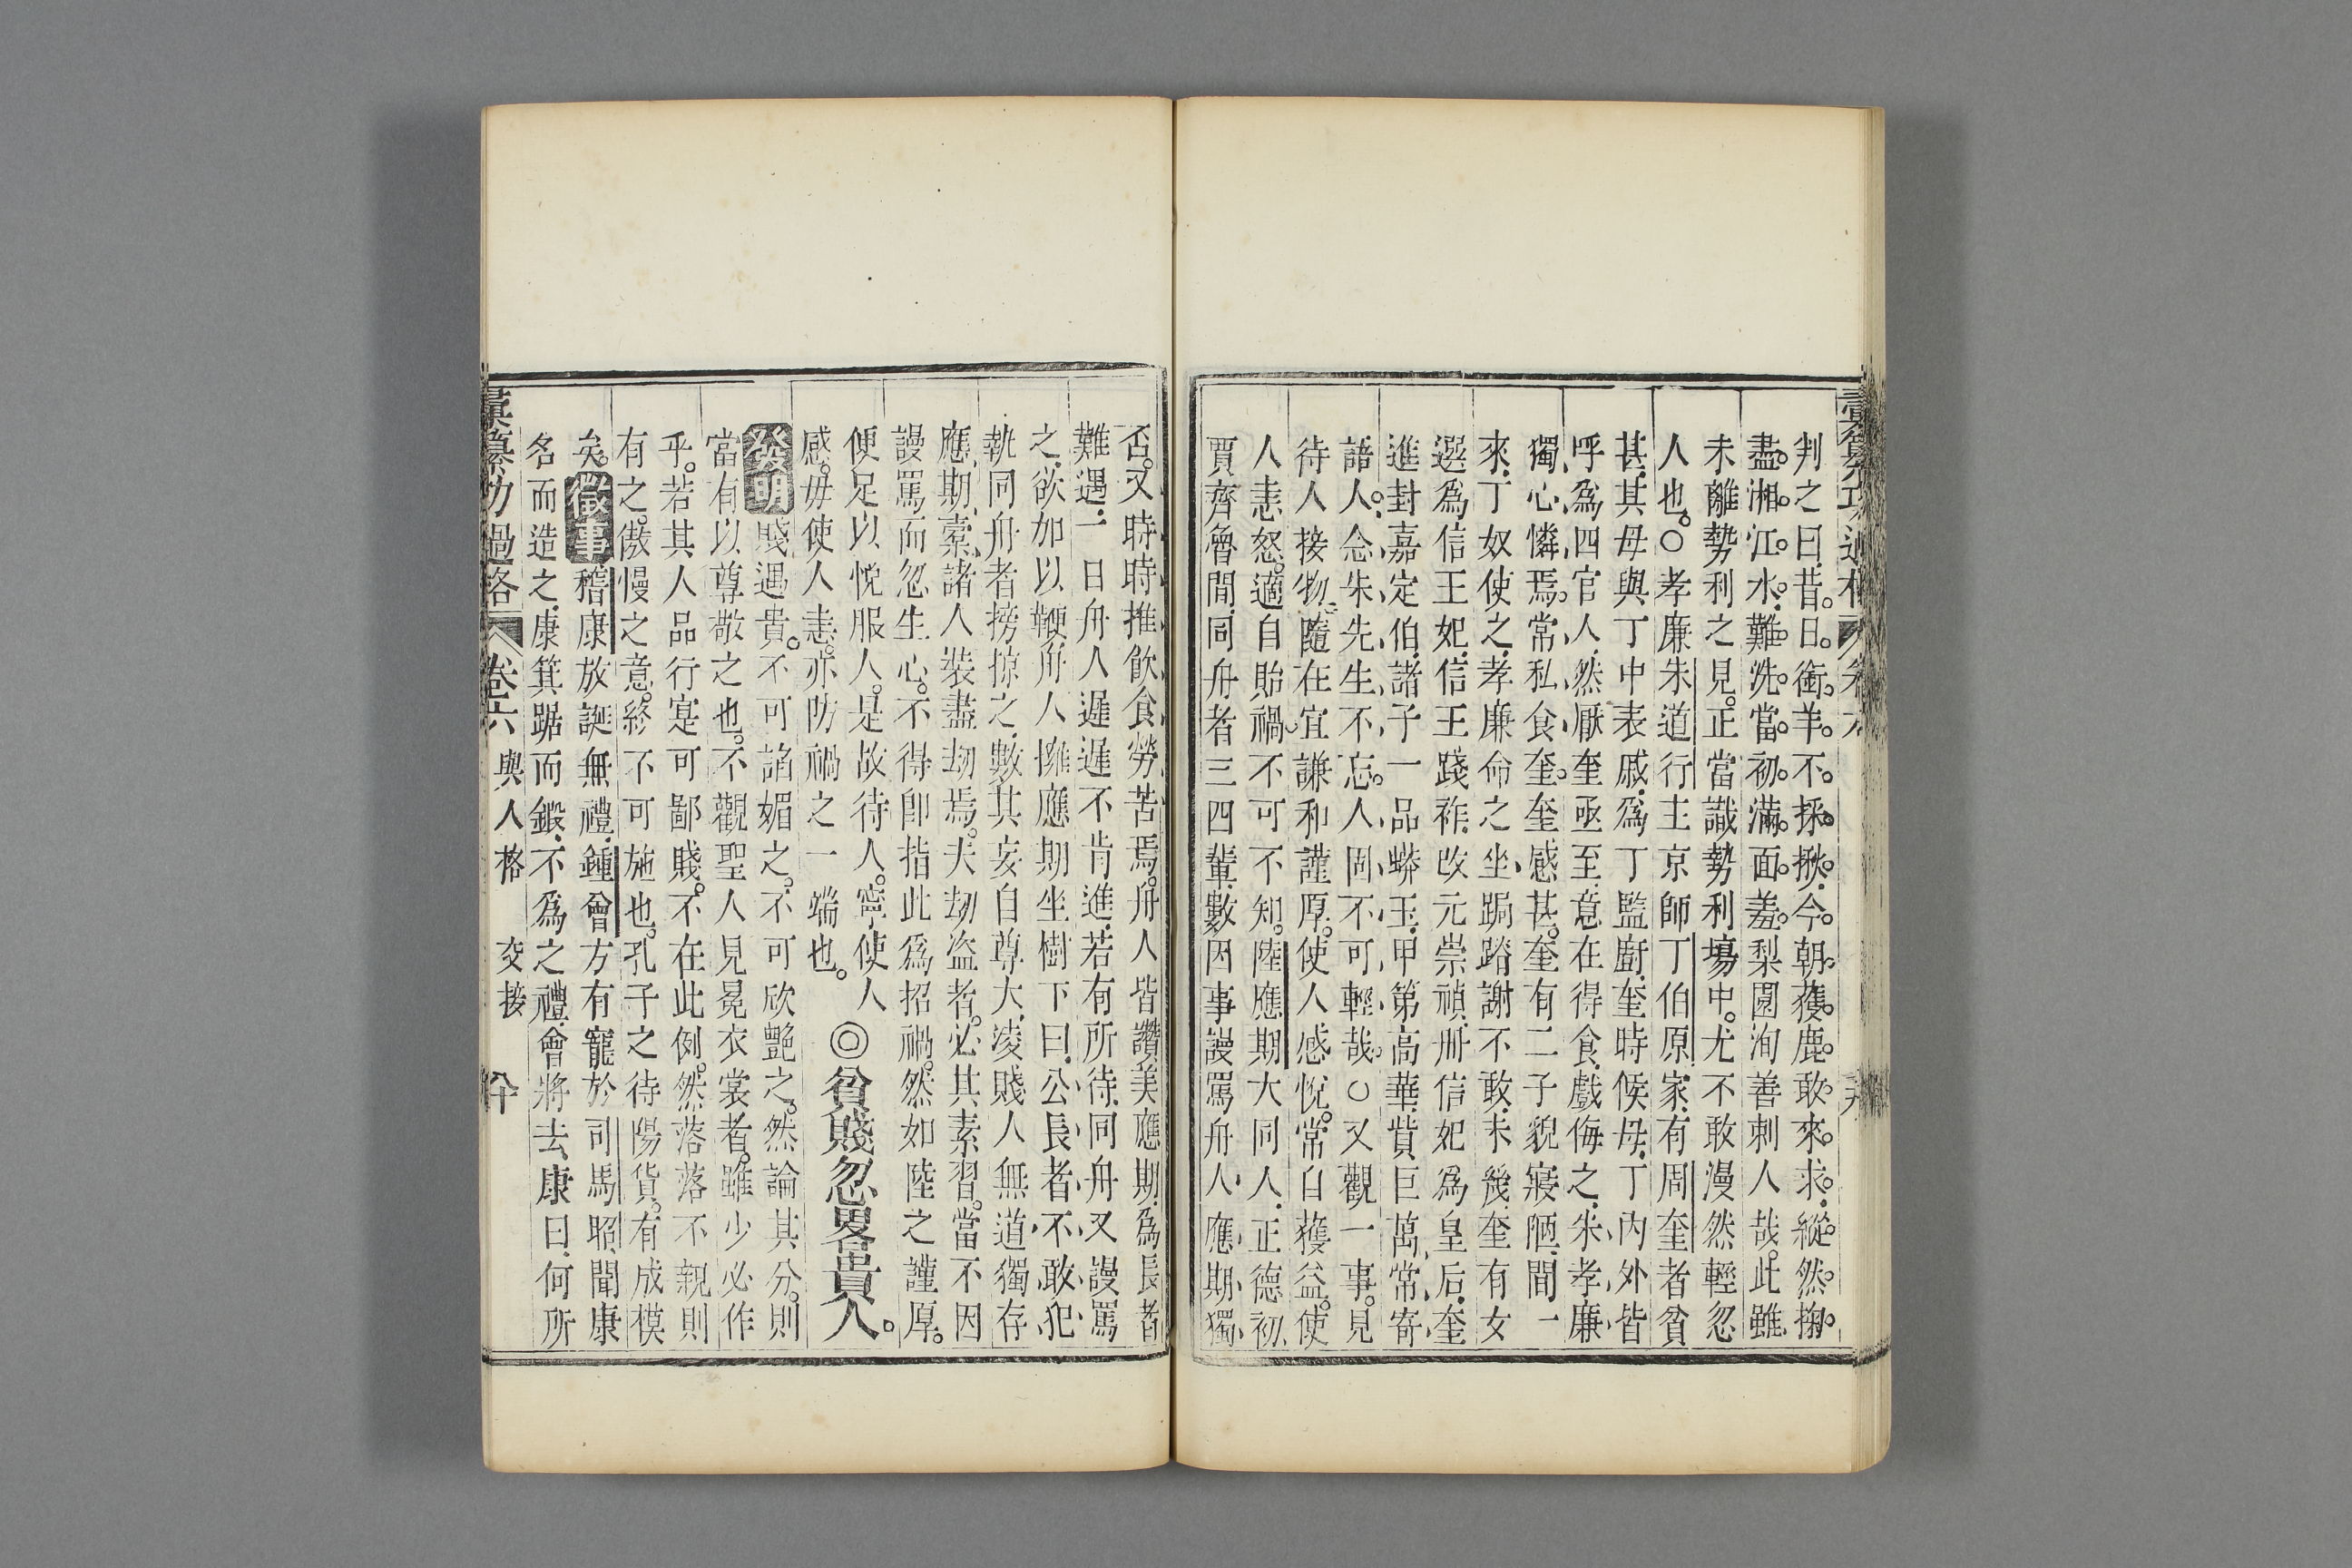 判之曰昔。日。銜。羊。不。採。揪。今。朝。獲。鹿。敢。來。求。縱。然。掬。
盡。湘。江。水。難。洗。當。初。滿。面。羞。梨園洵善刺人哉。此雖
未離勢利之見。正當識勢利場中。尤不敢漫然輕忽
人也。○孝廉朱道行主京師丁伯原家。有周奎者貧
甚。其母與丁中表戚。爲丁監廚。奎時候母。丁內外皆
呼爲四官人。然厭奎亟至。意在得食。戲侮之。朱孝廉
獨心憐焉。常私食奎。奎感甚。奎有二子貌寢陋。間一
來。丁奴使之。孝廉命之坐。跼蹐謝不敢。未幾。奎有女
選爲信王妃。信王踐祚。改元崇禎。冊信妃爲皇后。奎
進封嘉定伯。諸子一品蟒玉。甲第高華。貲巨萬。常寄
語人。念朱先生不忘。人固不可輕哉。○又觀一事。見
待人接物。隨在宜謙和謹厚。使人感悅。常自獲益。使
人恚怒。適自貽禍。不可不知。陸應期大同人。正德初
賈齊魯間。同舟者三四輩。數因事謾罵舟人。應期獨
否。又時時推飲食勞苦焉。舟人皆讚美應期。爲長者
難遇。一日舟人遲遲不肯進。若有所待。同舟又謾罵
之。欲加以鞭。舟人擁應期坐樹下曰。公長者。不敢犯
執同舟者搒掠之。數其妄自尊大。淩賤人無道。獨存
應期橐。諸人裝盡刼焉。夫刼盜者。必其素習。當不因
謾罵而忽生心。不得卽指此爲招禍。然如陸之謹厚。
便足以悅服人。是故待人。寧使人
感。毋使人恚。亦防禍之一端也。 ◎貧賤忽畧貴人。
發明賤遇貴。不可諂媚之。不可欣艷之。然論其分。則
當有以尊敬之也。不觀聖人見冕衣裳者。雖少必作
乎。若其人品行寔可鄙賤。不在此例。然落落不親則
有之。傲慢之意。終不可施也。孔子之待陽貨。有成模
矣。徵事稽康放誕無禮。鍾會方有寵於司馬昭。聞康
名而造之。康箕踞而鍛。不爲之禮。會將去。康曰。何所
彙纂功過格 卷六 與人格 交接 八十